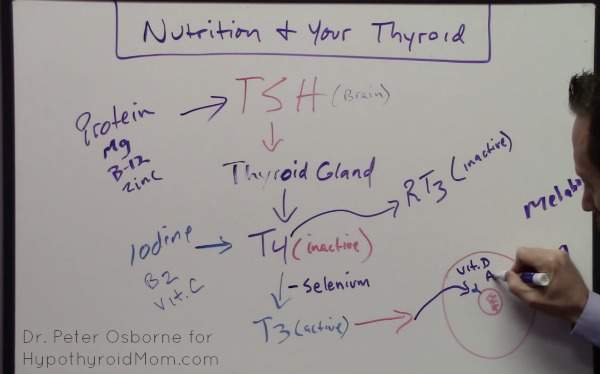 Nutrition & Your Thyroid
Protein
Mg
B-12
Zinc
TSH (Brain)
Thyroid Gland
RT3 (inactive)
Iodine
B2
Vit. C
T4 (inactive)
- Selenium
T3 (active)
Metabo
Vit. D
A
Dr. Peter Osborne for
HypothyroidMom.com